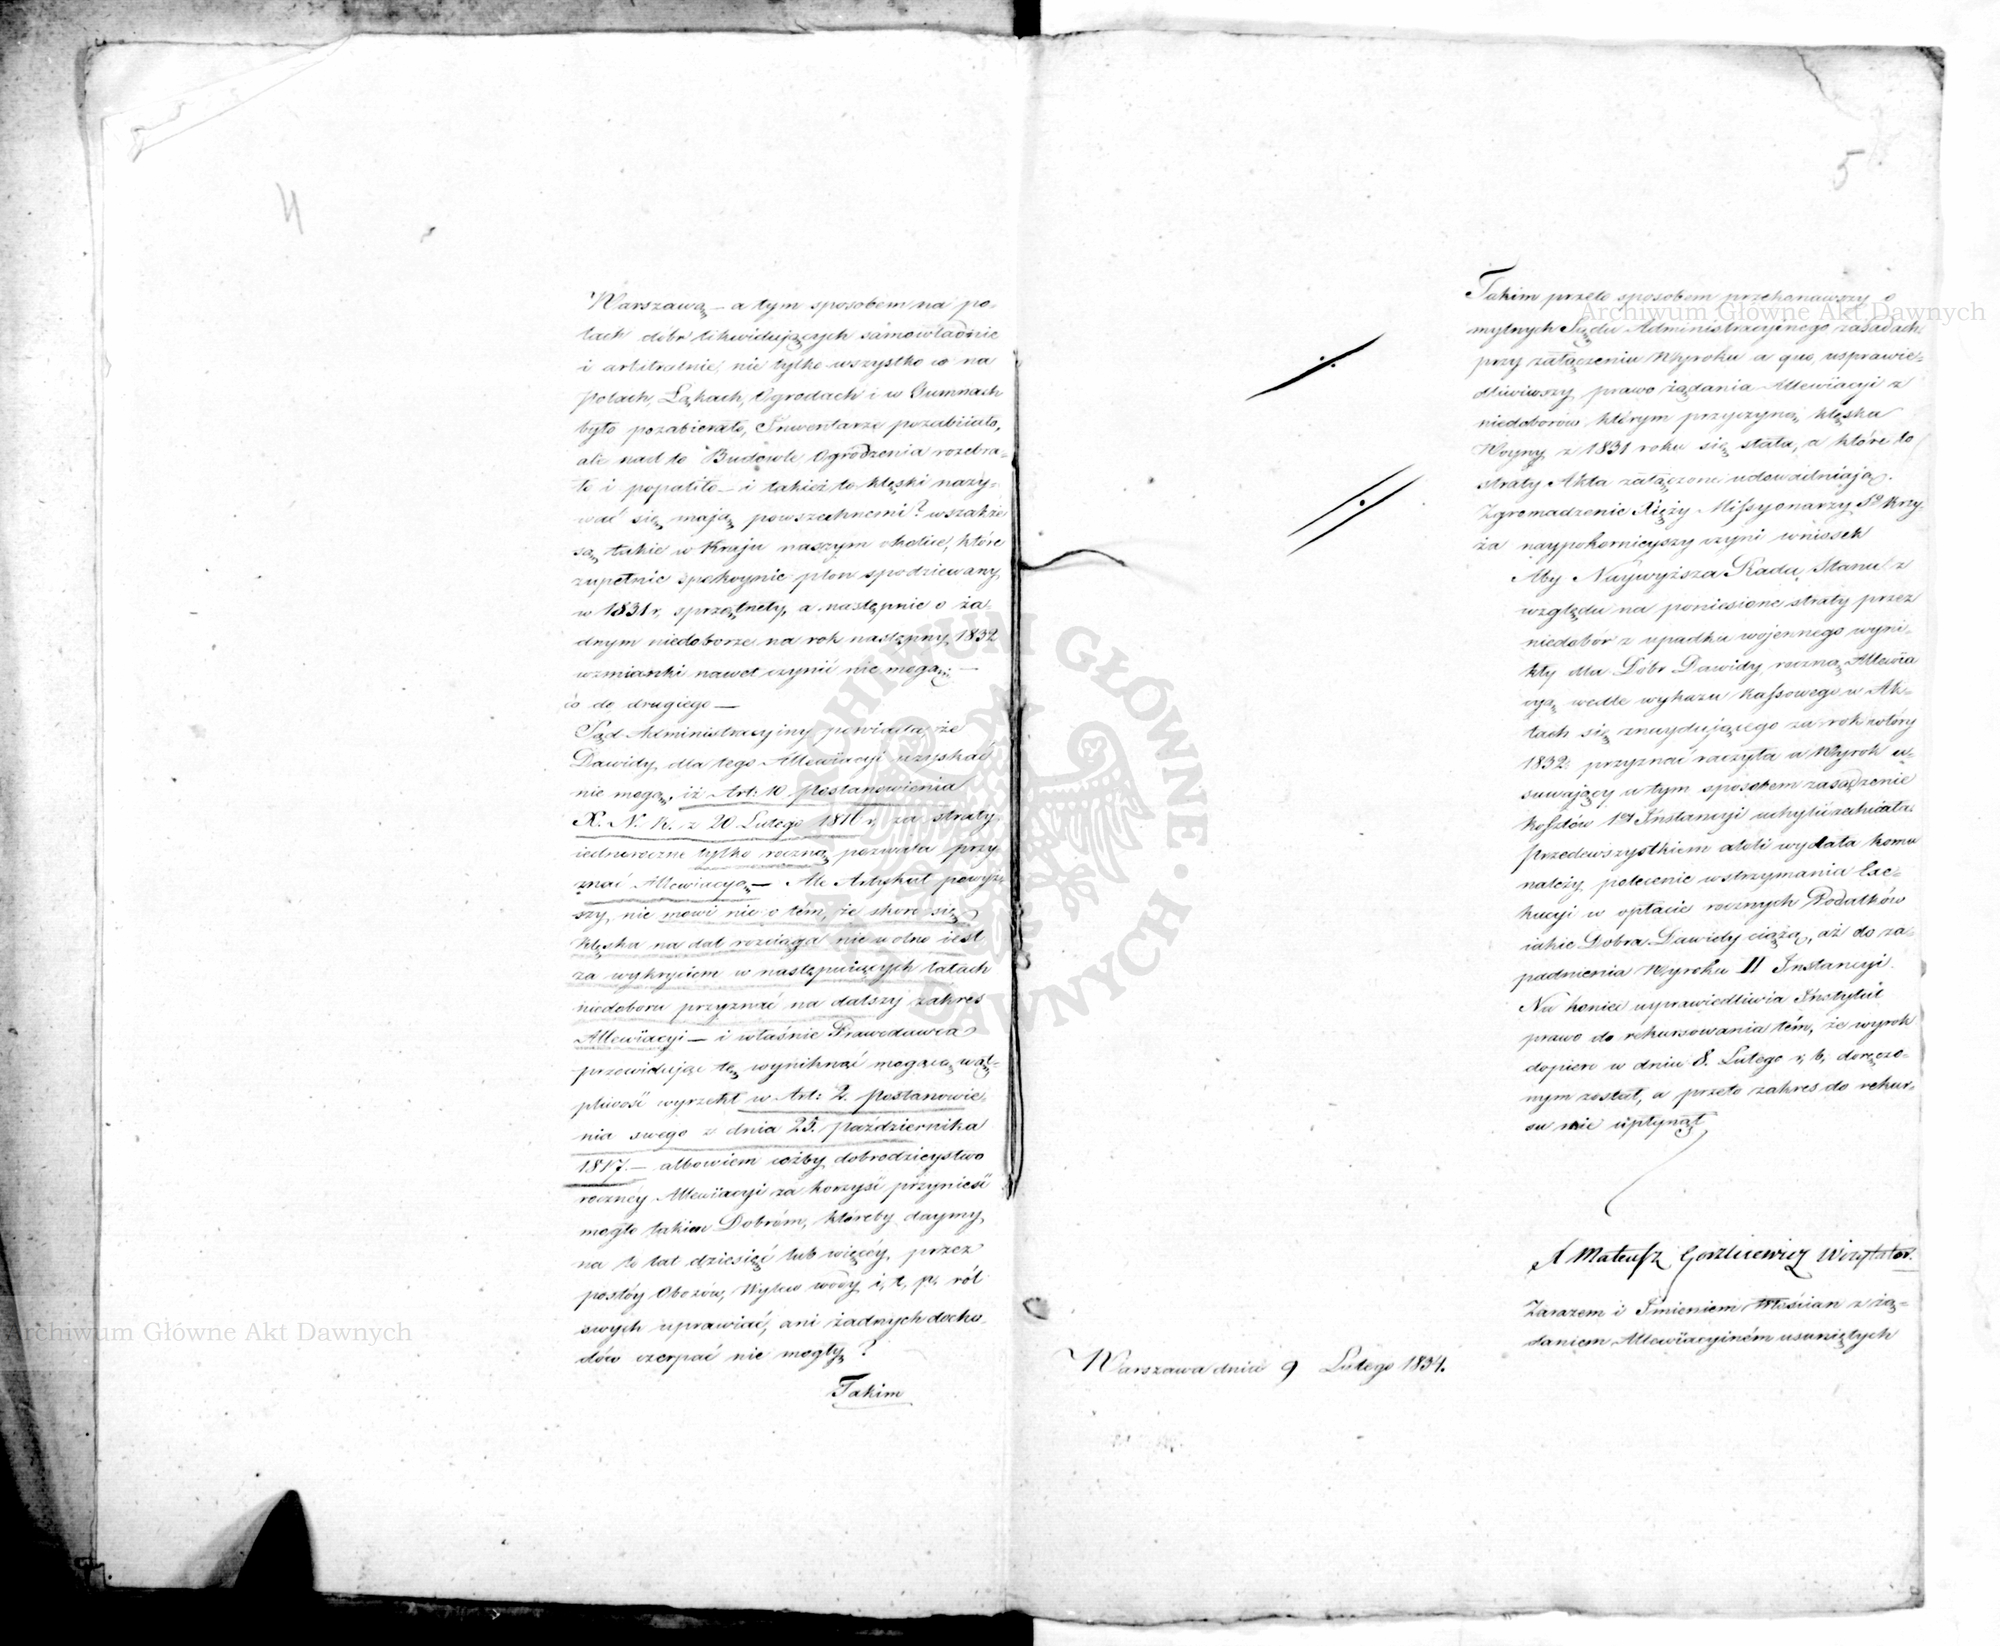 4
Warszawą — a tym sposobem na po-
lach dóbr likwidujących samowładnie
i arbitralnie, nie tylko wszystko co na
Polach, Łąkach, Ogrodach i w Gumnach
było pozabierało, Inwentarze pozabiiało,
ale nad to Budowle Ogrodzenia rozebra-
ło i popaliło — i takież to klęski nazy-
wać się mają powszechnemi? wszakże
są takie w Kraju naszym okolice, które
zupełnie spokoynie plon spodziewany
w 1831 r. sprzątnęły, a następnie o ża-
dnym niedoborze na rok następny 1832
wzmianki nawet czynić nie mogą; —
co do drugiego —
Sąd Administracyiny powiada że
Dawidy dla tego Allewiacyi uzyskać
nie mogą, iż Art: 10 postanowienia
X. N. K. z 20 Lutego 1816 r, za straty
iednoroczne tylko roczną pozwala przy-
znać Allewiacyą — Ale Artykuł powyż-
szy, nie mówi nic o tém, że skoro się
klęska na dal rozciąga nie wolno iest
za wykryciem w następuiących latach
niedoboru przyznać na dalszy zakres
Allewiacyi — i właśnie Prawodawca
przewidując tę wyniknąć mogącą wąt-
pliwość wyrzekł w Art: 2. postanowie-
nia swego z dnia 25. października
1817. — albowiem cożby dobrodzieystwo
roczney Allewiacyi za korzyść przynieść
mogło takim Dobróm, któreby daymy
na to lat dziesięć lub więcéy przez
postóy Obozów, Wylew wody i, t, p, ról
swych uprawiać, ani żadnych docho-
dów czerpać nie mogły?
Takim
5
Takim przeto sposobem przekonawszy o
mylnych Sądu Administracyinego zasadach
przy załączeniu Wyroku a quo, usprawie-
dliwiwszy prawo żądania Allewiacyi z
niedoborów, którym przyczyną klęska
Woyny z 1831 roku się stała, a które to
straty Akta załączone udowadniają.
Zgromadzenie Xięży Missyonarzy Sgo Krzy-
ża naypokornieyszy czyni wniosek
Aby Naywyższa Rada Stanu z
względu na poniesione straty przez
niedobór z upadku wojennego wyni-
kły dla Dóbr Dawidy roczną Allewia
cyą wedle wykazu Kassowego w Ak-
tach się znaydującego za rok który
1832. przyznać raczyła a Wyrok u-
suwający w tym sposobem zasądzenie
Kosztów 1éy Instancyi uchylić zechciała.
Przedewszystkiem atoli wydała komu
należy polecenie wstrzymania Exe-
kucyi w opłacie rocznych Podatków
iakie Dobra Dawidy ciążą, aż do za-
padnienia Wyroku II Instancyi.
Na koniec usprawiedliwia Instytut
prawo do rekursowania tém, że wyrok
dopiero w dniu 8. Lutego r, b, doręczo-
nym został, a przeto zakres do rekur-
su nie upłynął
X Mateusz Gorzkiewicz Wizytator.
Zarazem i Imieniem Włościan z żą-
daniem Allewiacyiném usuniętych
Warszawa dnia 9 Lutego 1834.
Archiwum Główne Akt Dawnych
Archiwum Główne Akt Dawnych
ARCHIWUM GŁÓWNE AKT DAWNYCH